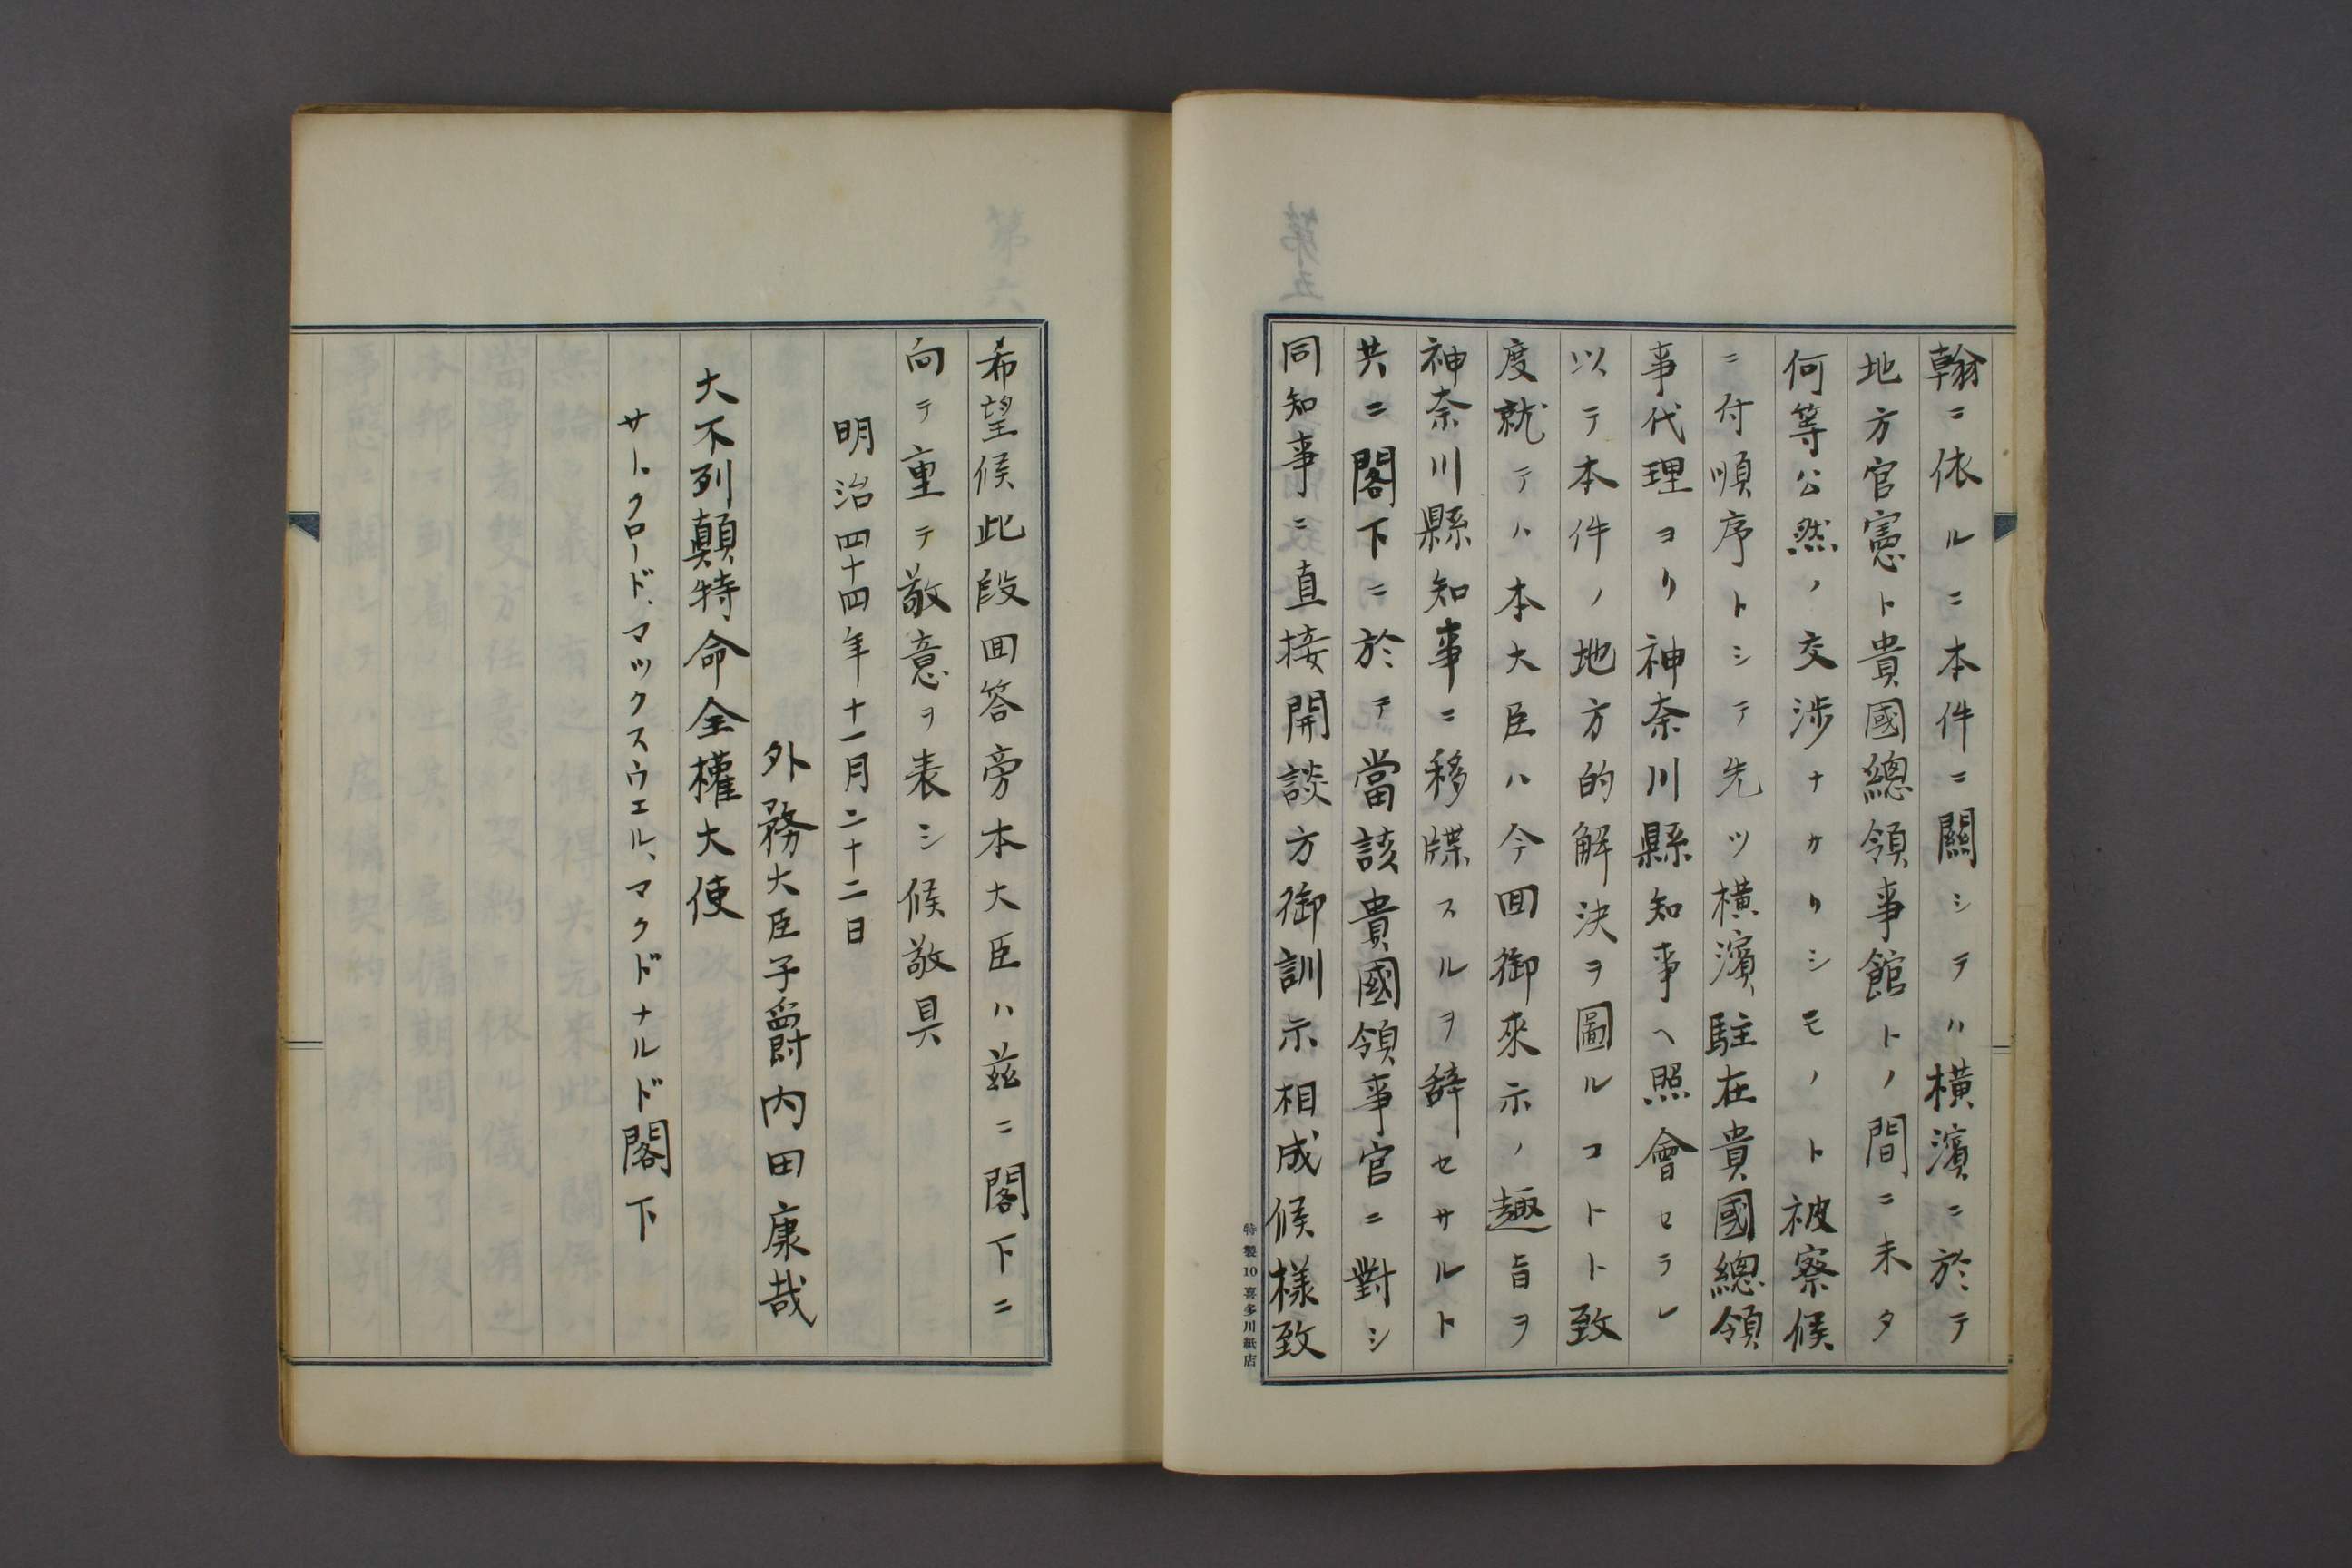 翰ニ依ルニ本件ニ關シテハ横濱ニ於テ
地方官憲ト貴國總領事館トノ間ニ未タ
何等公然ノ交渉ナカリシモノト被察候
ニ付順序トシテ先ツ横濱駐在貴國總領
事代理ヨリ神奈川縣知事ヘ照會セラレ
以テ本件ノ地方的解決ヲ圖ルコトト致
度就テハ本大臣ハ今回御來示ノ趣旨ヲ
神奈川縣知事ニ移牒スルヲ辞セサルト
共ニ閣下ニ於テ當該貴國領事官ニ對シ
同知事ニ直接開談方御訓示相成候様致
特製10喜多川紙店
希望候此段回答旁本大臣ハ茲ニ閣下ニ
向テ重テ敬意ヲ表シ候敬具
明治四十四年十一月二十二日
外務大臣子爵内田康哉
大不列顛特命全權大使
サー、クロード、マックスウエル、マクドナルド閣下
第五
第六